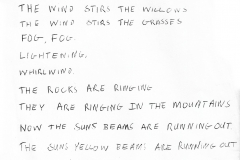 THE WIND STIRS THE WILLOWS
THE WIND STIRS THE GRASSES
FOG, FOG.
LIGHTENING,
WHIRLWIND.
THE ROCKS ARE RINGING
THEY ARE RINGING IN THE MOUNTAINS
NOW THE SUNS BEAMS ARE RUNNING OUT
THE SUNS YELLOW BEAMS ARE RUNNING OUT